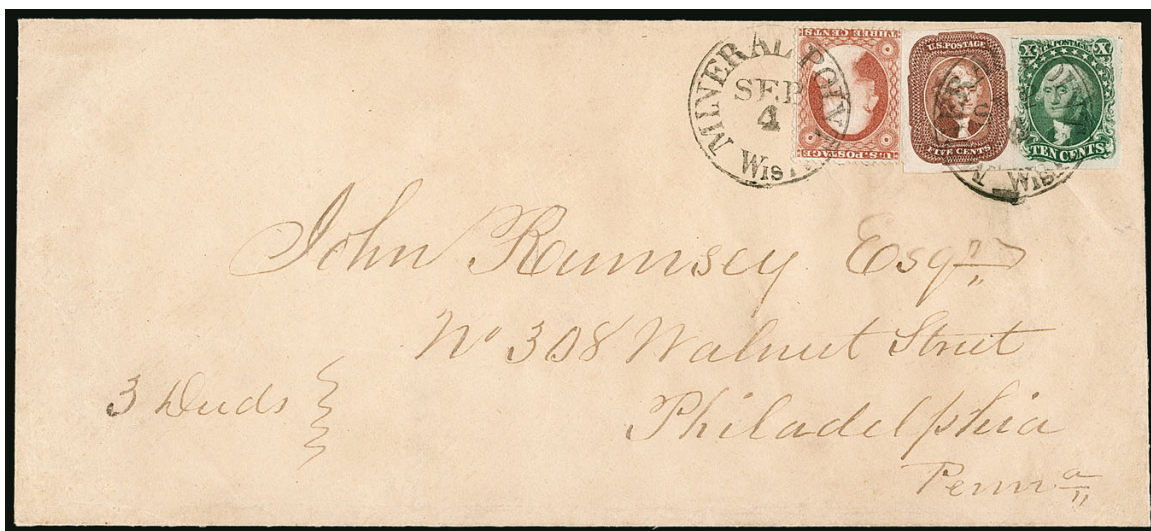 MINERAL POINT
SEP
4
WIS
THREE CENTS
U.S. POSTAGE
U.S. POSTAGE
FIVE CENTS
U.S. POSTAGE
X X
TEN CENTS
WIS
John Rumsey Esqr
No 308 Walnut Street
3 Deeds
Philadelphia
Penna